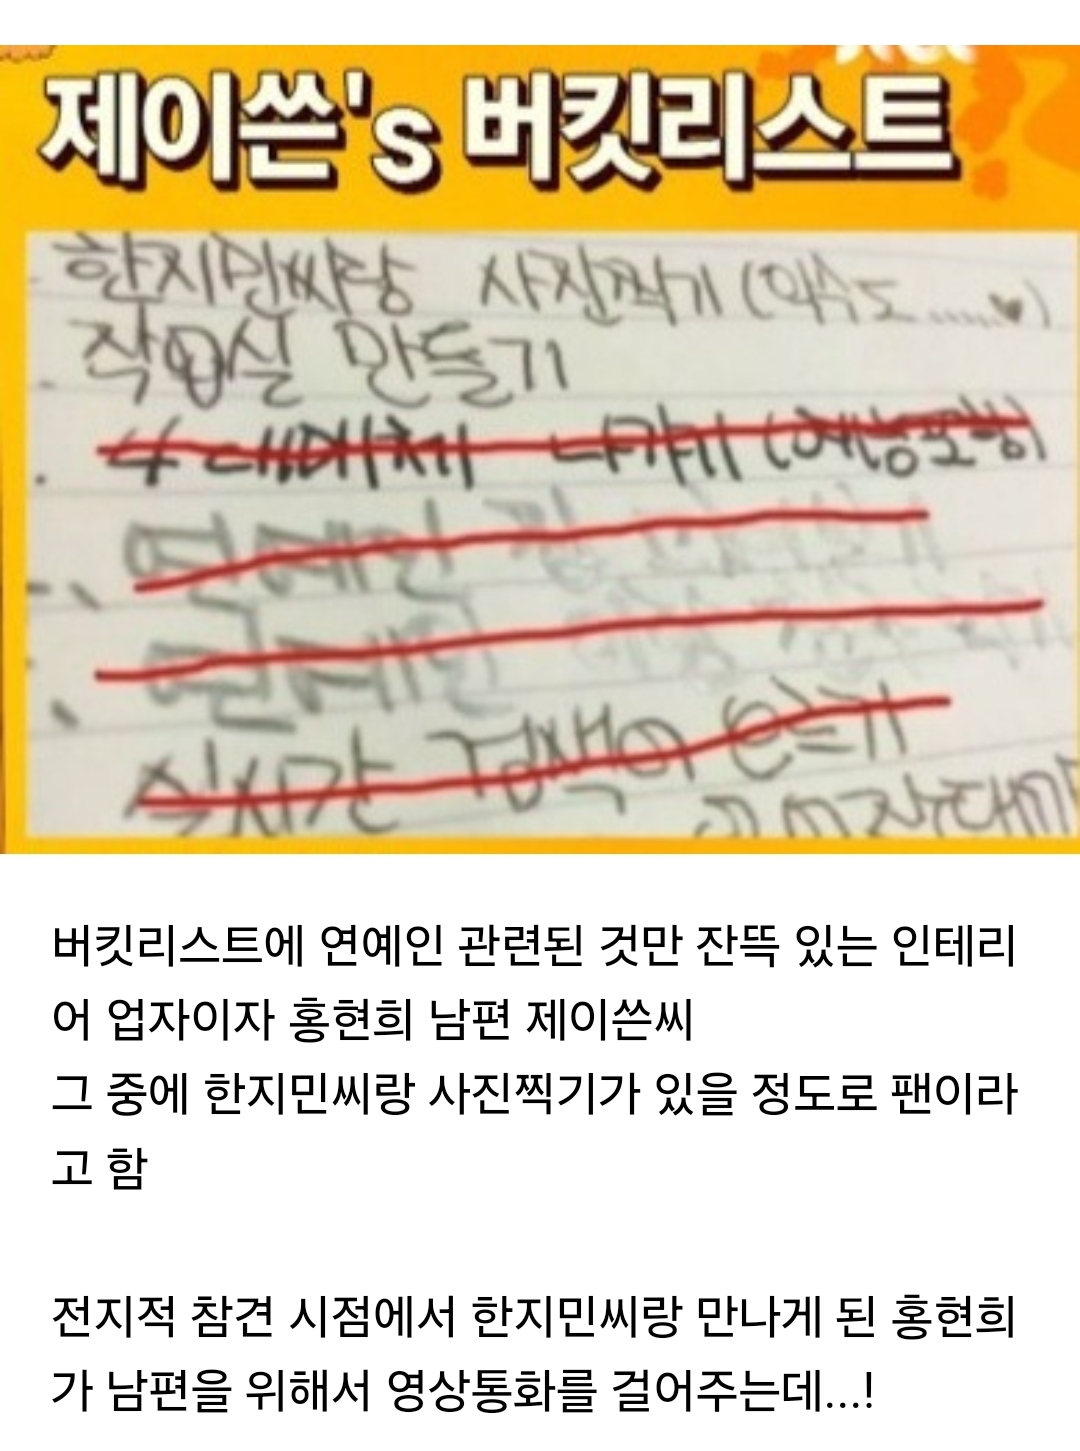 제이쓴's 버킷리스트
한지민씨랑 사진찍기 (악수도.....♥)
작업실 만들기
4대매체 나가기 (예능포함)
연예인 집
연예인
실시간 검색어 오르기
버킷리스트에 연예인 관련된 것만 잔뜩 있는 인테리
어 업자이자 홍현희 남편 제이쓴씨
그 중에 한지민씨랑 사진찍기가 있을 정도로 팬이라
고 함
전지적 참견 시점에서 한지민씨랑 만나게 된 홍현희
가 남편을 위해서 영상통화를 걸어주는데...!